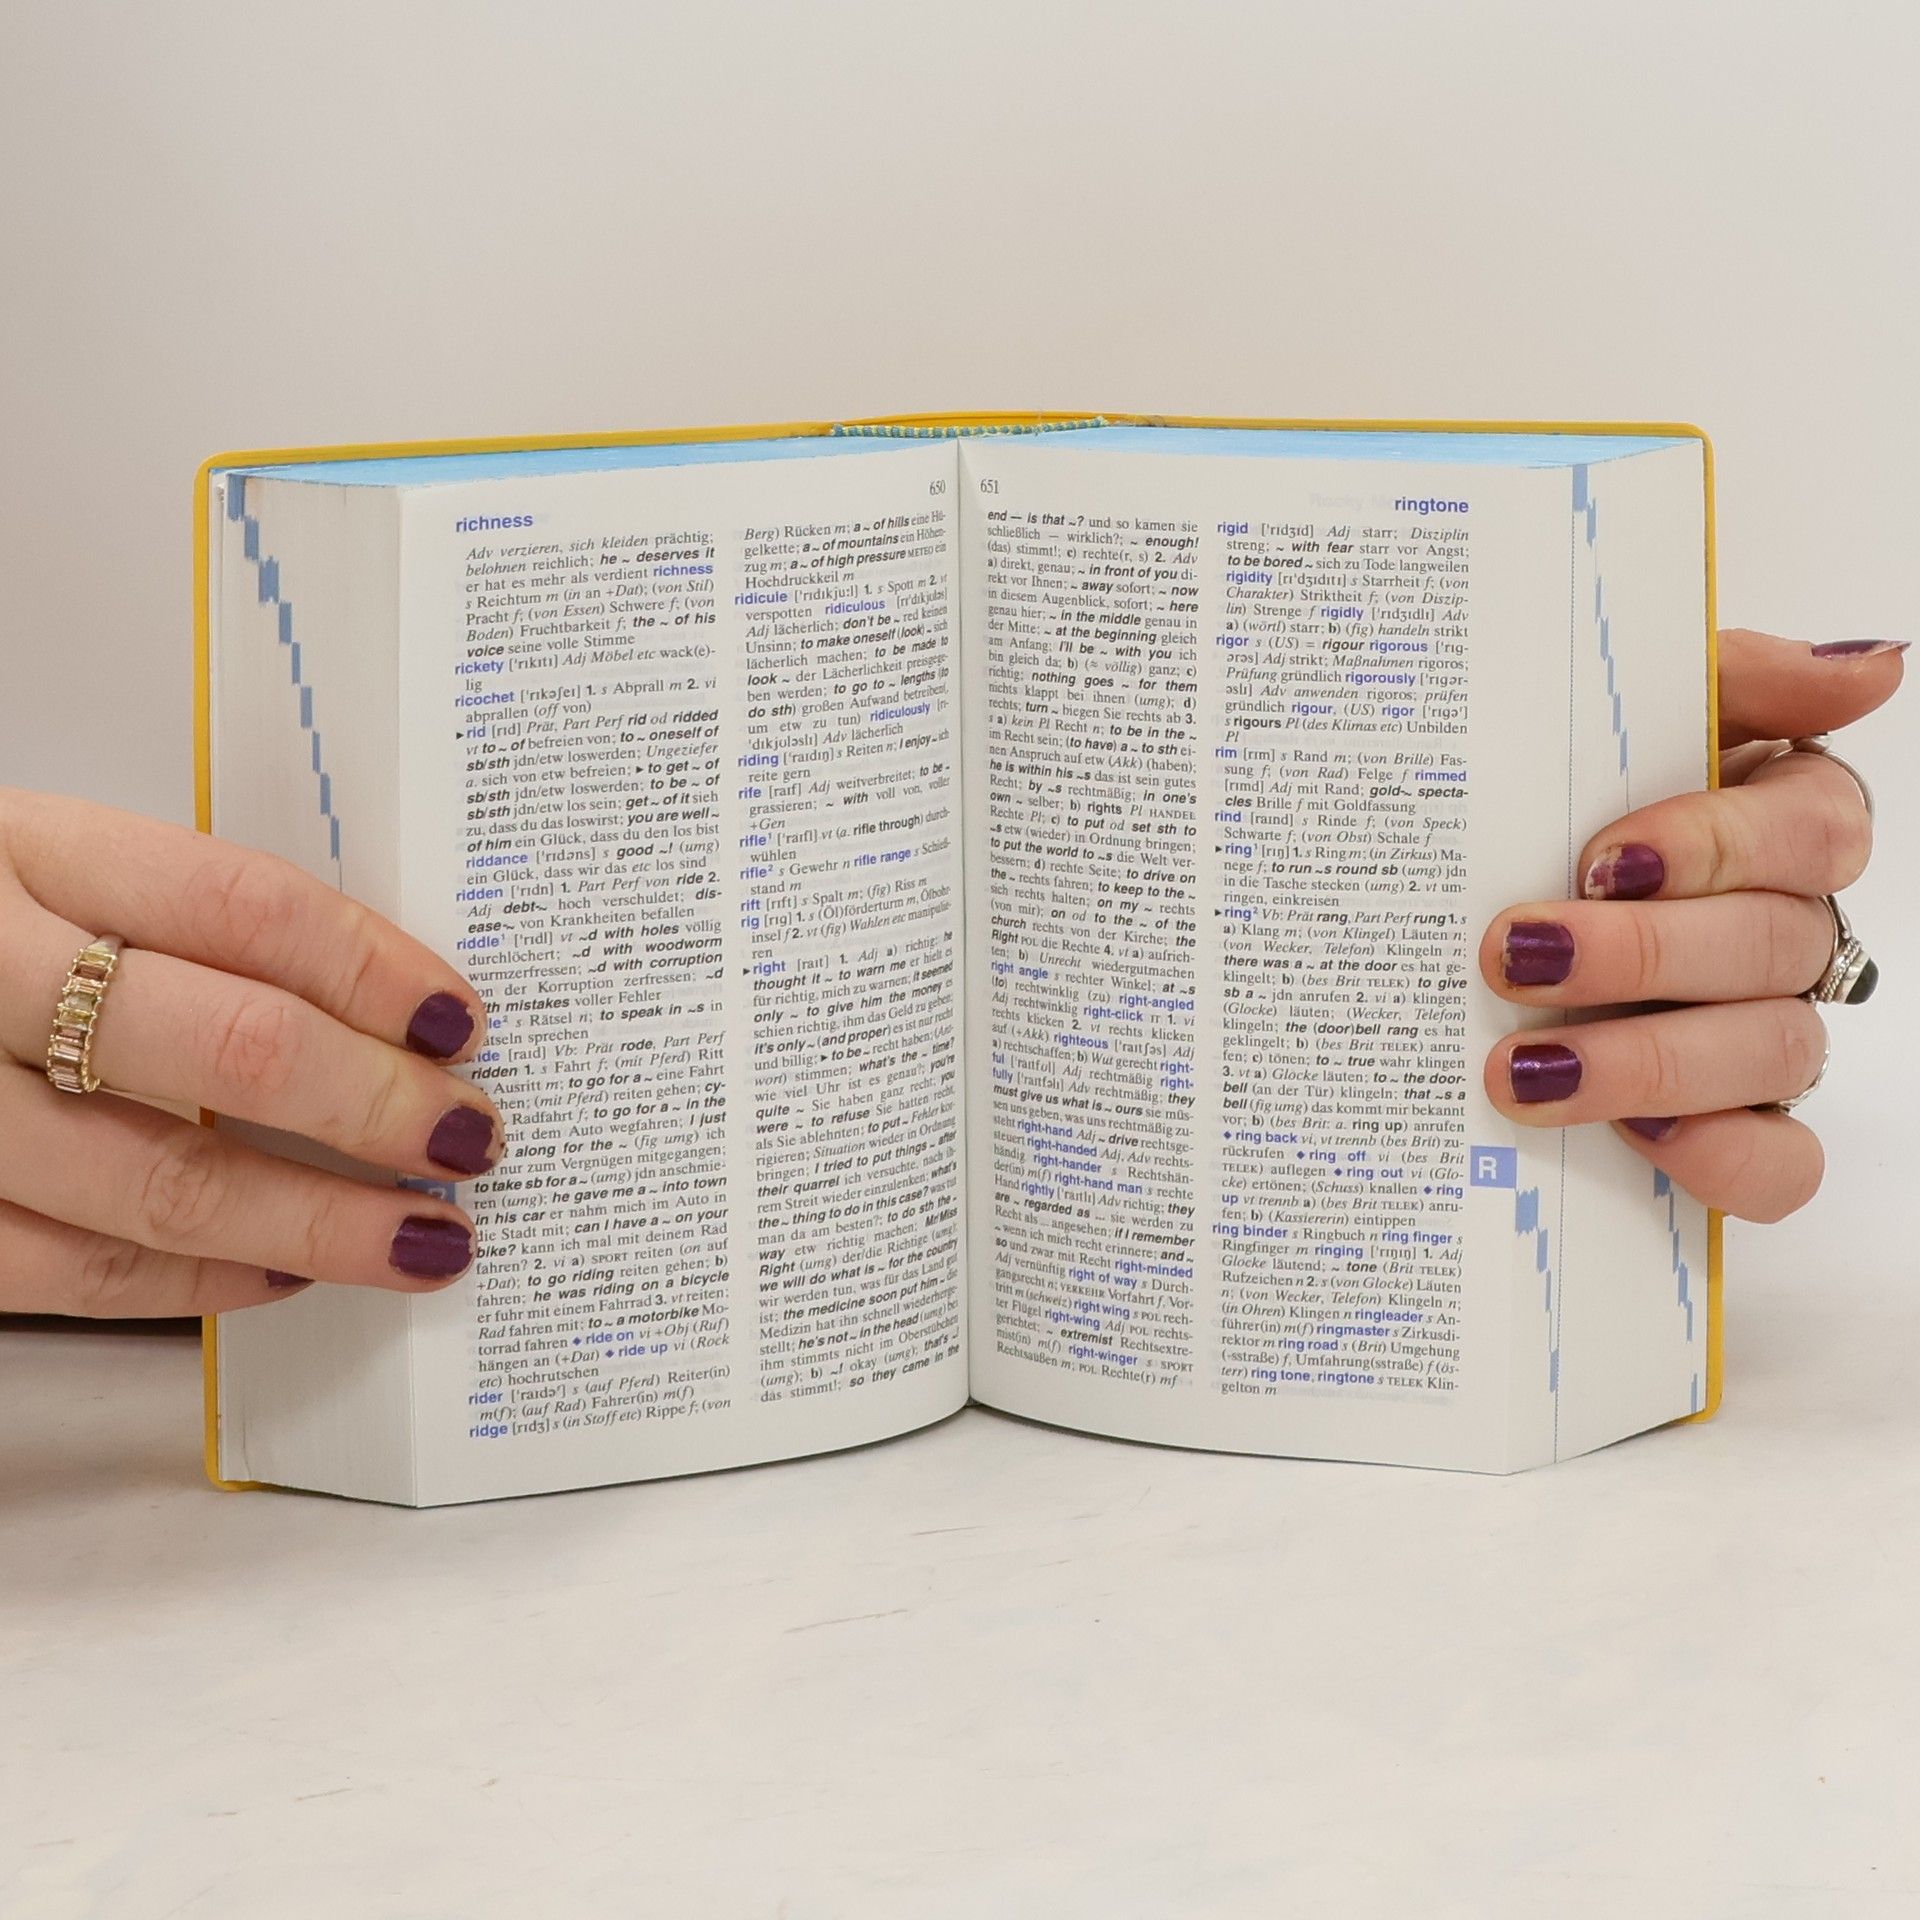 650
richness
Adv verzieren, sich kleiden prächtig;
belohnen reichlich; he ~ deserves it
er hat es mehr als verdient richness
s Reichtum m (in an +Dat); (von Stil)
Pracht f; (von Essen) Schwere f; (von
Boden) Fruchtbarkeit f; the ~ of his
voice seine volle Stimme
rickety ['rɪkɪtɪ] Adj Möbel etc wack(e)-
lig
ricochet ['rɪkəʃeɪ] 1. s Abprall m 2. vi
abprallen (off von)
▸rid [rɪd] Prät, Part Perf rid od ridded
vt to ~ of befreien von; to ~ oneself of
sb/sth jdn/etw loswerden; Ungeziefer
a. sich von etw befreien; ▸ to get ~ of
sb/sth jdn/etw loswerden; to be ~ of
sb/sth jdn/etw los sein; get ~ of it sieh
zu, dass du das loswirst; you are well ~
of him ein Glück, dass du den los bist
riddance ['rɪdəns] s good ~! (umg)
ein Glück, dass wir das etc los sind
ridden ['rɪdn] 1. Part Perf von ride 2.
Adj debt-~ hoch verschuldet; dis-
ease-~ von Krankheiten befallen
riddle¹ ['rɪdl] vt ~d with holes völlig
durchlöchert; ~d with woodworm
wurmzerfressen; ~d with corruption
von der Korruption zerfressen; ~d
with mistakes voller Fehler
s Rätsel n; to speak in ~s in
sprechen
[raɪd] Vb: Prät rode, Part Perf
ridden 1. s Fahrt f; (mit Pferd) Ritt
Ausritt m; to go for a ~ eine Fahrt
(mit Pferd) reiten gehen; cy-
Radfahrt f; to go for a ~ in the
mit dem Auto wegfahren; I just
along for the ~ (fig umg) ich
nur zum Vergnügen mitgegangen;
to take sb for a ~ (umg) jdn anschmie-
ren (umg); he gave me a ~ into town
in his car er nahm mich im Auto in
die Stadt mit; can I have a ~ on your
bike? kann ich mal mit deinem Rad
fahren? 2. vi a) SPORT reiten (on auf
+Dat); to go riding reiten gehen; b)
fahren; he was riding on a bicycle
er fuhr mit einem Fahrrad 3. vt reiten;
Rad fahren mit; to ~ a motorbike Mo-
torrad fahren ◆ ride on vi +Obj (Ruf)
hängen an (+Dat) ◆ ride up vi (Rock
etc) hochrutschen
rider ['raɪdəʳ] s (auf Pferd) Reiter(in)
m(f); (auf Rad) Fahrer(in) m(f)
ridge [rɪdʒ] s (in Stoff etc) Rippe f; (von
Berg) Rücken m; a ~ of hills eine Hü-
gelkette; a ~ of mountains ein Höhen-
zug m; a ~ of high pressure METEO ein
Hochdruckkeil m
ridicule ['rɪdɪkjuːl] 1. s Spott m 2. vt
verspotten ridiculous [rɪ'dɪkjʊləs]
Adj lächerlich; don't be ~ red keinen
Unsinn; to make oneself (look) ~ sich
lächerlich machen; to be made to
look ~ der Lächerlichkeit preisgege-
ben werden; to go to ~ lengths (to
do sth) großen Aufwand betreiben(,
um etw zu tun) ridiculously [rɪ-
'dɪkjʊləslɪ] Adv lächerlich
riding ['raɪdɪŋ] s Reiten n; I enjoy ~ ich
reite gern
rife [raɪf] Adj weitverbreitet; to be ~
grassieren; ~ with voll von, voller
+Gen
rifle¹ ['raɪfl] vt (a. rifle through) durch-
wühlen
rifle² s Gewehr n rifle range s Schieß-
stand m
rift [rɪft] s Spalt m; (fig) Riss m
rig [rɪg] 1. s (Öl)förderturm m, Ölbohr-
insel f 2. vt (fig) Wahlen etc manipulie-
ren
▸right [raɪt] 1. Adj a) richtig; he
thought it ~ to warn me er hielt es
für richtig, mich zu warnen; it seemed
only ~ to give him the money es
schien richtig, ihm das Geld zu geben;
it's only ~ (and proper) es ist nur recht
und billig; ▸ to be ~ recht haben; (Ant-
wort) stimmen; what's the ~ time?
wie viel Uhr ist es genau?; you're
quite ~ Sie haben ganz recht; you
were ~ to refuse Sie hatten recht,
als Sie ablehnten; to put ~ Fehler kor-
rigieren; Situation wieder in Ordnung
bringen; I tried to put things ~ after
their quarrel ich versuchte, nach ih-
rem Streit wieder einzulenken; what's
the ~ thing to do in this case? was tut
man da am besten?; to do sth the ~
way etw richtig machen; Mr/Miss
Right (umg) der/die Richtige (umg);
we will do what is ~ for the country
wir werden tun, was für das Land gut
ist; the medicine soon put him ~ die
Medizin hat ihn schnell wiederherge-
stellt; he's not ~ in the head (umg) bei
ihm stimmts nicht im Oberstübchen
(umg); b) ~! okay (umg); that's ~!
das stimmt!; so they came in the
651
ringtone
end — is that ~? und so kamen sie
schließlich — wirklich?; ~ enough!
(das) stimmt!; c) rechte(r, s) 2. Adv
a) direkt, genau; ~ in front of you di-
rekt vor Ihnen; ~ away sofort; ~ now
in diesem Augenblick, sofort; ~ here
genau hier; ~ in the middle genau in
der Mitte; ~ at the beginning gleich
am Anfang; I'll be ~ with you ich
bin gleich da; b) (≈ völlig) ganz; c)
richtig; nothing goes ~ for them
nichts klappt bei ihnen (umg); d)
rechts; turn ~ biegen Sie rechts ab 3.
s a) kein Pl Recht n; to be in the ~
im Recht sein; (to have) a ~ to sth ei-
nen Anspruch auf etw (Akk) (haben);
he is within his ~s das ist sein gutes
Recht; by ~s rechtmäßig; in one's
own ~ selber; b) rights Pl HANDEL
Rechte Pl; c) to put od set sth to
~s etw (wieder) in Ordnung bringen;
to put the world to ~s die Welt ver-
bessern; d) rechte Seite; to drive on
the ~ rechts fahren; to keep to the ~
sich rechts halten; on my ~ rechts
(von mir); on od to the ~ of the
church rechts von der Kirche; the
Right POL die Rechte 4. vt a) aufrich-
ten; b) Unrecht wiedergutmachen
right angle s rechter Winkel; at ~s
(to) rechtwinklig (zu) right-angled
Adj rechtwinklig right-click IT 1. vi
rechts klicken 2. vt rechts klicken
auf (+Akk) righteous ['raɪtʃəs] Adj
a) rechtschaffen; b) Wut gerecht right-
ful ['raɪtfʊl] Adj rechtmäßig right-
fully ['raɪtfəlɪ] Adv rechtmäßig; they
must give us what is ~ ours sie müs-
sen uns geben, was uns rechtmäßig zu-
steht right-hand Adj ~ drive rechtsge-
steuert right-handed Adj, Adv rechts-
händig right-hander s Rechtshän-
der(in) m(f) right-hand man s rechte
Hand rightly ['raɪtlɪ] Adv richtig; they
are ~ regarded as ... sie werden zu
Recht als ... angesehen; if I remember
~ wenn ich mich recht erinnere; and ~
so und zwar mit Recht right-minded
Adj vernünftig right of way s Durch-
gangsrecht n; VERKEHR Vorfahrt f, Vor-
tritt m (schweiz) right wing s POL rech-
ter Flügel right-wing Adj POL rechts-
gerichtet; ~ extremist Rechtsextre-
mist(in) m(f) right-winger s SPORT
Rechtsaußen m; POL Rechte(r) mf
rigid ['rɪdʒɪd] Adj starr; Disziplin
streng; ~ with fear starr vor Angst;
to be bored ~ sich zu Tode langweilen
rigidity [rɪ'dʒɪdɪtɪ] s Starrheit f; (von
Charakter) Striktheit f; (von Diszip-
lin) Strenge f rigidly ['rɪdʒɪdlɪ] Adv
a) (wörtl) starr; b) (fig) handeln strikt
rigor s (US) = rigour rigorous ['rɪg-
ərəs] Adj strikt; Maßnahmen rigoros;
Prüfung gründlich rigorously ['rɪgər-
əslɪ] Adv anwenden rigoros; prüfen
gründlich rigour, (US) rigor ['rɪgəʳ]
s rigours Pl (des Klimas etc) Unbilden
Pl
rim [rɪm] s Rand m; (von Brille) Fas-
sung f; (von Rad) Felge f rimmed
[rɪmd] Adj mit Rand; gold-~ specta-
cles Brille f mit Goldfassung
rind [raɪnd] s Rinde f; (von Speck)
Schwarte f; (von Obst) Schale f
▸ring¹ [rɪŋ] 1. s Ring m; (in Zirkus) Ma-
nege f; to run ~s round sb (umg) jdn
in die Tasche stecken (umg) 2. vt um-
ringen, einkreisen
▸ring² Vb: Prät rang, Part Perf rung 1. s
a) Klang m; (von Klingel) Läuten n;
(von Wecker, Telefon) Klingeln n;
there was a ~ at the door es hat ge-
klingelt; b) (bes Brit TELEK) to give
sb a ~ jdn anrufen 2. vi a) klingen;
(Glocke) läuten; (Wecker, Telefon)
klingeln; the (door)bell rang es hat
geklingelt; b) (bes Brit TELEK) anru-
fen; c) tönen; to ~ true wahr klingen
3. vt a) Glocke läuten; to ~ the door-
bell (an der Tür) klingeln; that ~s a
bell (fig umg) das kommt mir bekannt
vor; b) (bes Brit: a. ring up) anrufen
◆ ring back vi, vt trennb (bes Brit) zu-
rückrufen ◆ ring off vi (bes Brit
TELEK) auflegen ◆ ring out vi (Glo-
cke) ertönen; (Schuss) knallen ◆ ring
up vt trennb a) (bes Brit TELEK) anru-
fen; b) (Kassiererin) eintippen
ring binder s Ringbuch n ring finger s
Ringfinger m ringing ['rɪŋɪŋ] 1. Adj
Glocke läutend; ~ tone (Brit TELEK)
Rufzeichen n 2. s (von Glocke) Läuten
n; (von Wecker, Telefon) Klingeln n;
(in Ohren) Klingen n ringleader s An-
führer(in) m(f) ringmaster s Zirkusdi-
rektor m ring road s (Brit) Umgehung
(-sstraße) f, Umfahrung(sstraße) f (ös-
terr) ring tone, ringtone s TELEK Klin-
gelton m
R